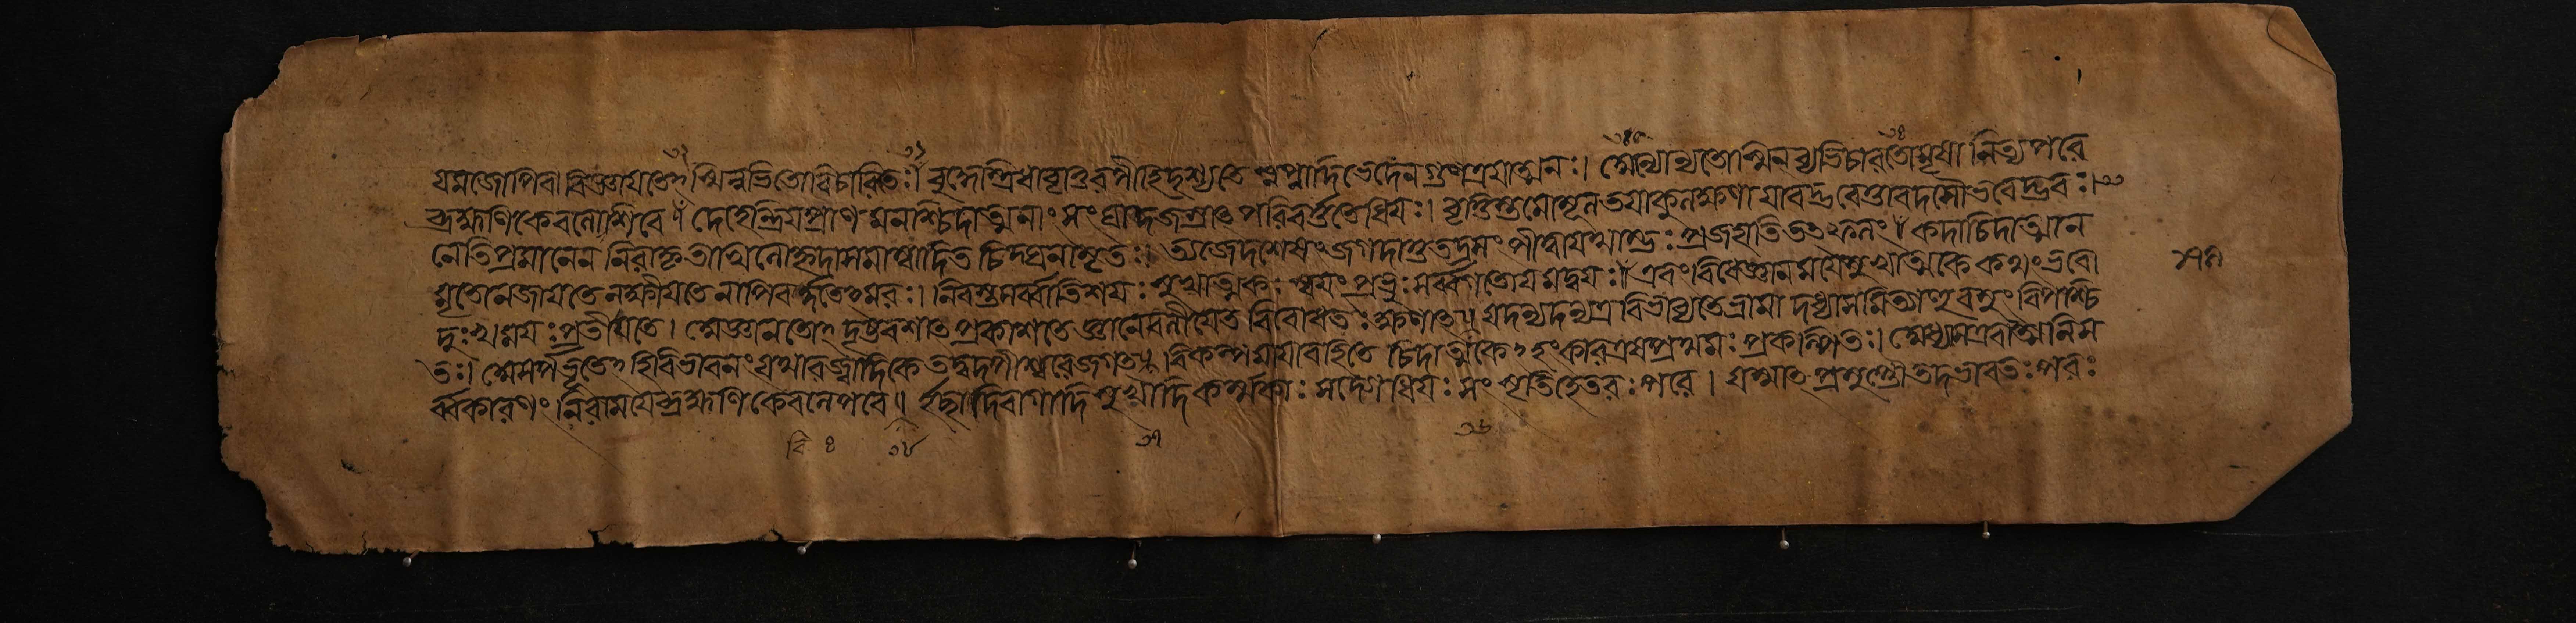 যমজোপিবা বিজ্ঞায়তেঽস্মিন্নভিতোবিচারিতঃ॥ বুদ্ধেস্ত্রিধাবৃত্তিরপীহদৃশ্যতে স্বপ্নাদিভেদেনগুণত্রয়াত্মনঃ। অন্যোন্যতোস্মিন্ব্যভিচারতোমৃষা নিত্যেপরে
ব্রহ্মণিকেবলেশিবে॥ দেহেন্দ্রিয়প্রাণমনশ্চিদাত্মনাং সংঘাদজস্রাৎ পরিবর্ত্ততেধিয়ঃ। বৃত্তিস্তমোমূলতয়াজ্ঞলক্ষণা যাবদ্ভবেত্তাবদসৌভবেদ্ভবঃ॥
নেতিপ্রমাণেন নিরাকৃতাখিলোহৃদাসমাস্বাদিত চিদ্ঘনামৃতঃ। ত্যজেদশেষং জগদাত্তসদ্রসং পীত্বাযথাম্ভঃ প্রজহাতিতৎফলং॥ কদাচিদাত্মান
মৃতোনজায়তে নক্ষীয়তে নাপিবর্দ্ধতেঽমরঃ। নিরস্তসর্ব্বাতিশয়ঃ সুখাত্মকঃ স্বয়ং প্রভুঃ সর্ব্বগতোয়মদ্বয়ঃ॥ এবংবিধেজ্ঞানময়েসুখাত্মকে কথংভবো
দুঃখময়ঃ প্রতীয়তে। অজ্ঞানতোঽধ্যাসবশাৎ প্রকাশতে জ্ঞানেবিলীয়েত বিরোধতঃ ক্ষণাৎ॥ যদন্যদন্যত্র বিভাব্যতেভ্রমা দধ্যাসমিত্যাহুরমুং বিপশ্চি
তঃ। অসর্পভূতেঽহিবিভাবনং যথারজ্জ্বাদিকে তদ্বদপীশ্বরেজগৎ॥ বিকল্পমায়ারহিতে চিদাত্মকেঽহংকারএষপ্রথমঃ প্রকল্পিতঃ। অধ্যাসএবাত্মনিস
র্ব্বকারণং নিরাময়েব্রহ্মণি কেবলেপরে॥ ইচ্ছাদিরাগাদি সুখাদি ধর্ম্মিকাঃ সদাধিয়ঃ সংসৃতিহেতবঃ পরে। যস্মাৎ প্রসুপ্তৌতদভাবতঃ পরঃ